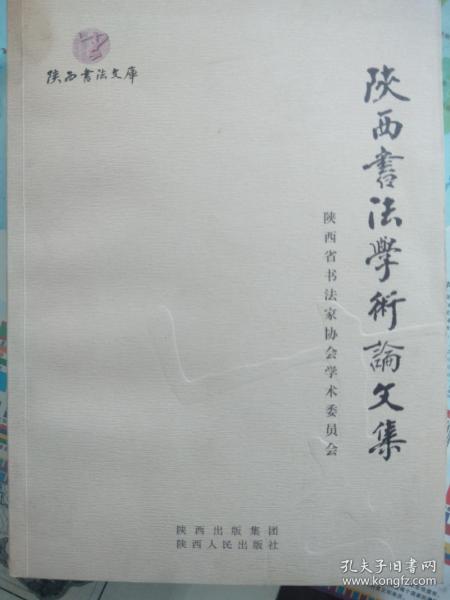 陕西書法文庫
陝西書法學術論文集
陕西省书法家协会学术委员会
陕西出版集团
陕西人民出版社
孔夫子旧书网